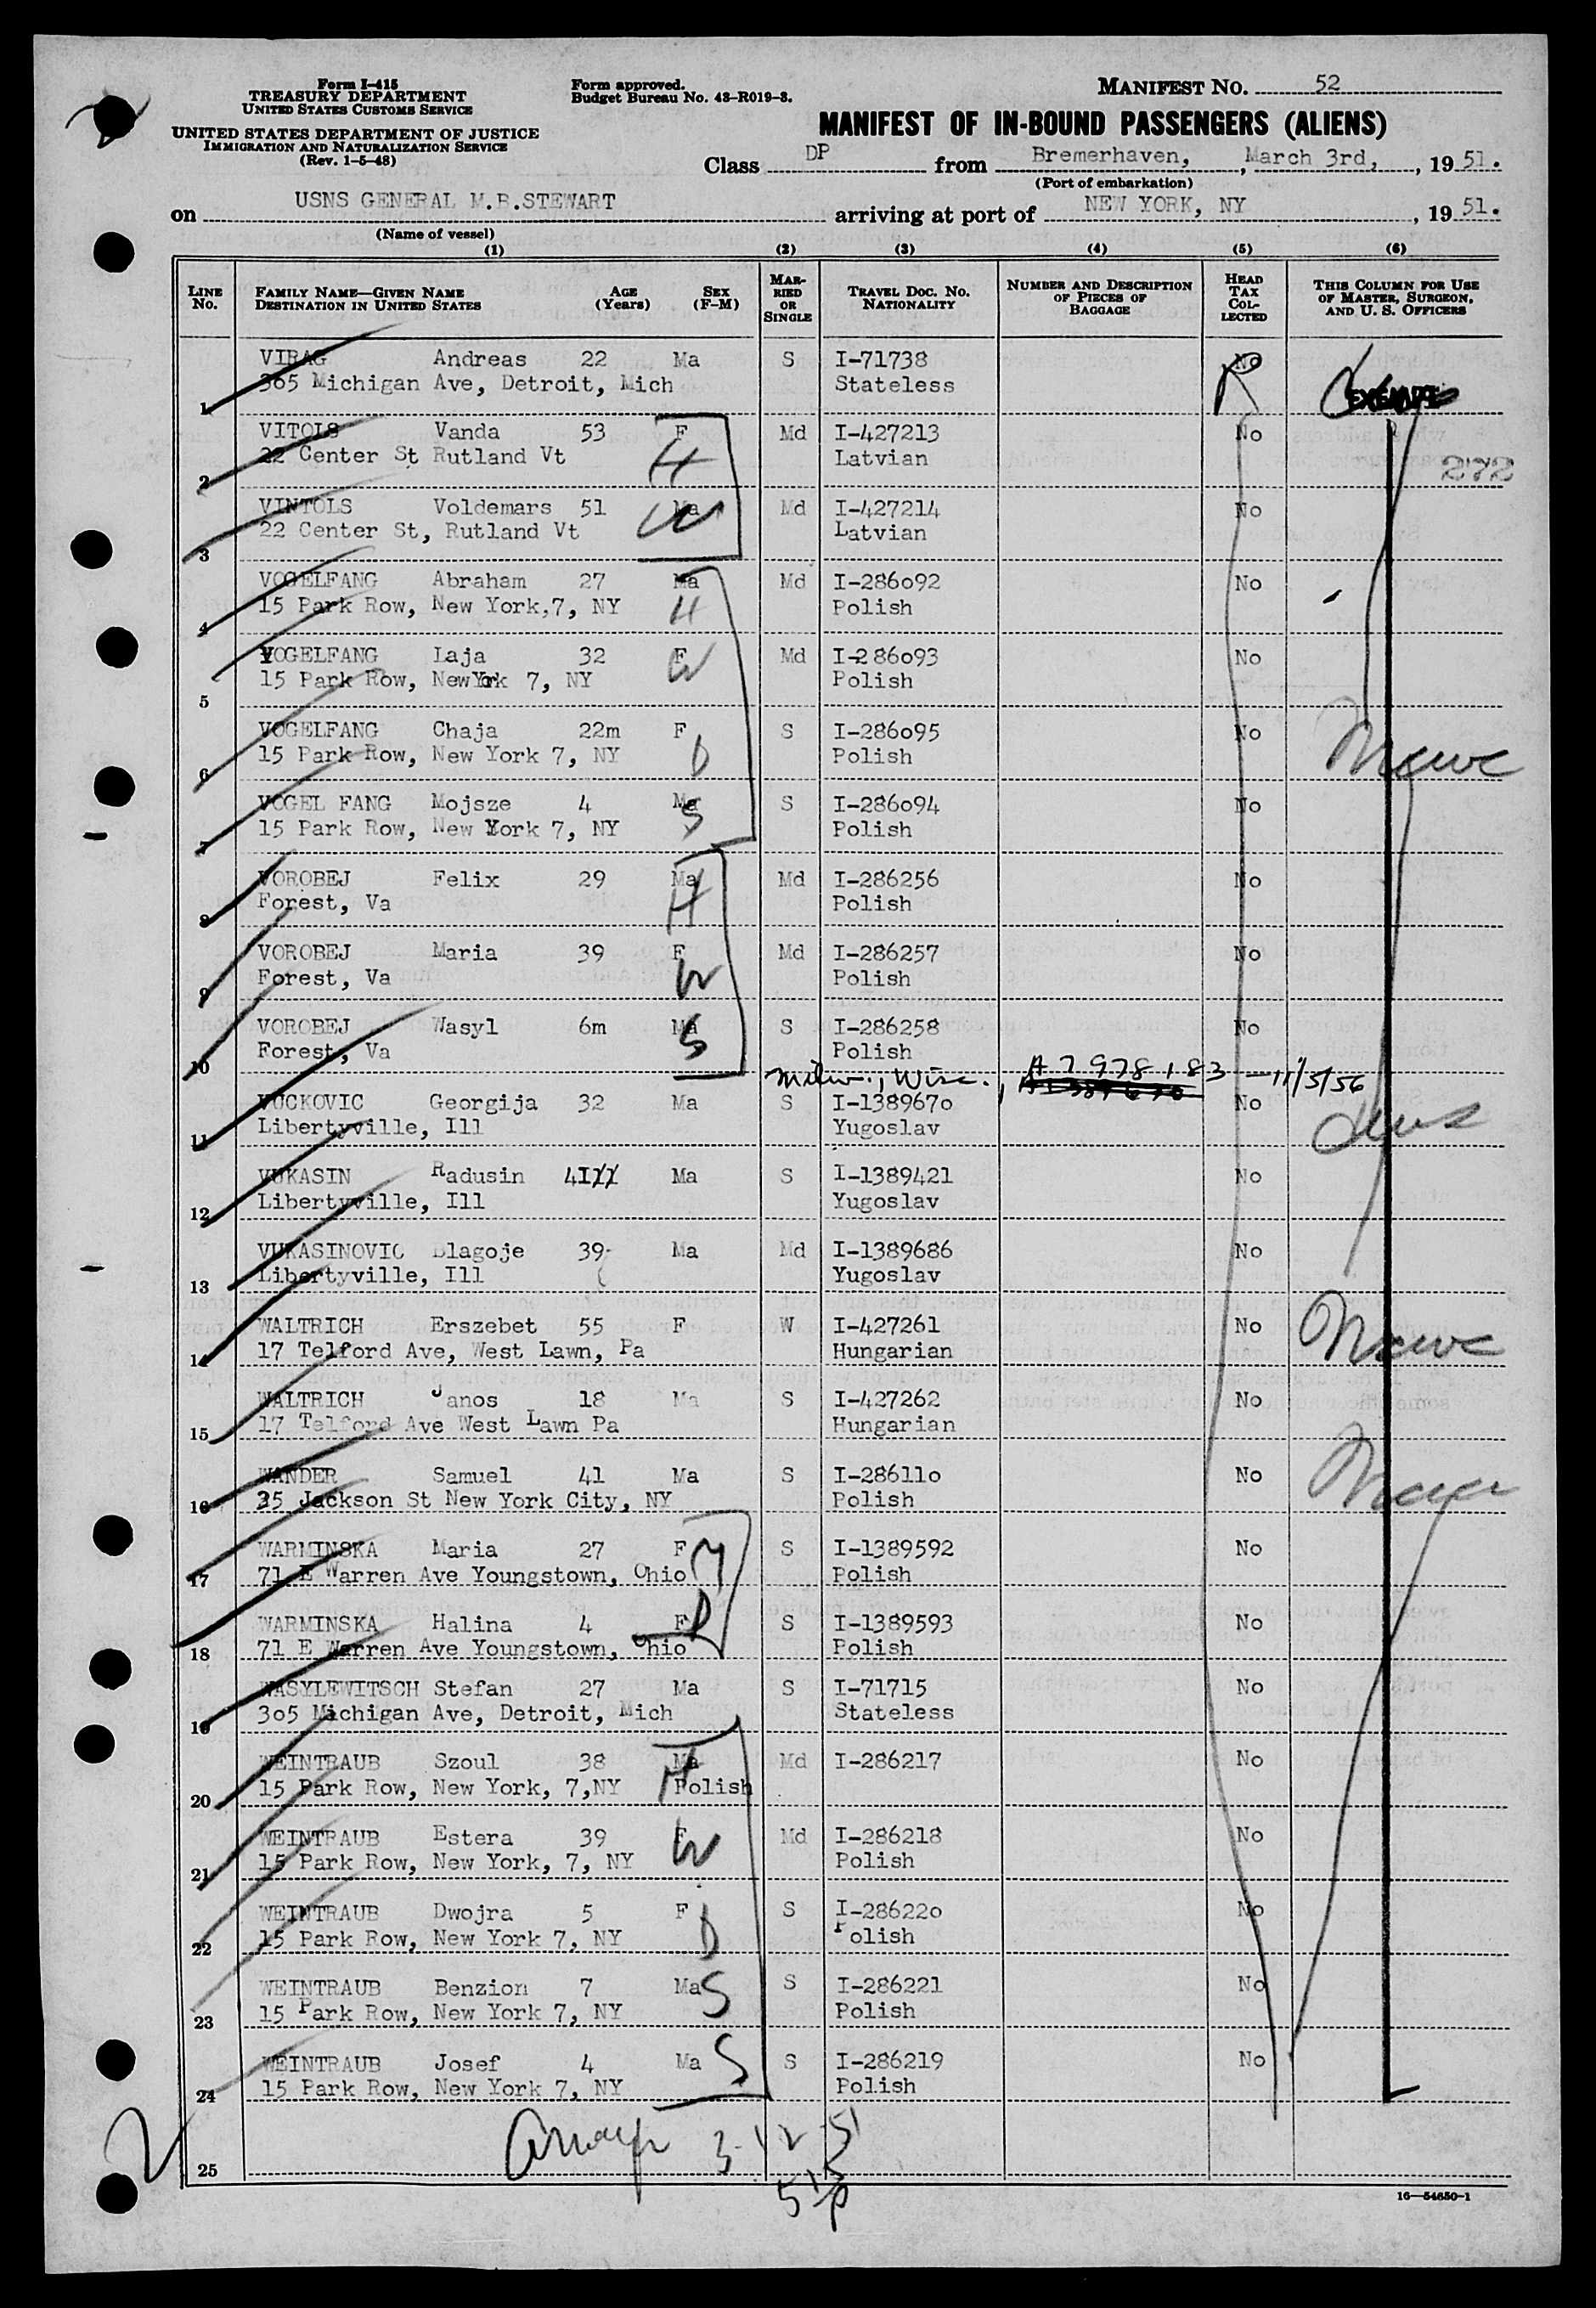 Form I-415
TREASURY DEPARTMENT
UNITED STATES CUSTOMS SERVICE
UNITED STATES DEPARTMENT OF JUSTICE
IMMIGRATION AND NATURALIZATION SERVICE
(Rev. 1-5-48)
Form approved.
Budget Bureau No. 43-R019-3.
MANIFEST NO. 52
MANIFEST OF IN-BOUND PASSENGERS (ALIENS)
Class DP from Bremerhaven, March 3rd, , 19 51.
(Port of embarkation)
on USNS GENERAL M.B.STEWART arriving at port of NEW YORK, NY , 19 51.
(Name of vessel)
(1) (2) (3) (4) (5) (6)
LINE No.
FAMILY NAME—GIVEN NAME AGE (Years) SEX (F-M)
DESTINATION IN UNITED STATES
MARRIED OR SINGLE
TRAVEL DOC. NO. NATIONALITY
NUMBER AND DESCRIPTION OF PIECES OF BAGGAGE
HEAD TAX COLLECTED
THIS COLUMN FOR USE OF MASTER, SURGEON, AND U. S. OFFICERS
1 VIRAG Andreas 22 Ma S I-71738 No
365 Michigan Ave, Detroit, Mich Stateless EXEMPT
2 VITOLS Vanda 53 F Md I-427213 No
22 Center St Rutland Vt H Latvian 272
3 VINTOLS Voldemars 51 Ma Md I-427214 No
22 Center St, Rutland Vt W Latvian
4 VOGELFANG Abraham 27 Ma Md I-286o92 No
15 Park Row, New York,7, NY H Polish
5 VOGELFANG Laja 32 F Md I-286o93 No
15 Park Row, NewYork 7, NY W Polish
6 VOGELFANG Chaja 22m F S I-286o95 No
15 Park Row, New York 7, NY D Polish
7 VOGEL FANG Mojsze 4 Ma S I-286o94 No
15 Park Row, New York 7, NY S Polish
8 VOROBEJ Felix 29 Ma Md I-286256 No
Forest, Va H Polish
9 VOROBEJ Maria 39 F Md I-286257 No
Forest, Va W Polish
10 VOROBEJ Wasyl 6m Ma S I-286258 No
Forest, Va S Polish
Milw., Wisc., A7978183 — 11/5/56
11 VUCKOVIC Georgija 32 Ma S I-138967o No
Libertyville, Ill Yugoslav
12 VUKASIN Radusin 41 Ma S I-1389421 No
Libertyville, Ill Yugoslav
13 VUKASINOVIC Blagoje 39 Ma Md I-1389686 No
Libertyville, Ill Yugoslav
14 WALTRICH Erszebet 55 F W I-427261 No
17 Telford Ave, West Lawn, Pa Hungarian
15 WALTRICH Janos 18 Ma S I-427262 No
17 Telford Ave West Lawn Pa Hungarian
16 WANDER Samuel 41 Ma S I-28611o No
35 Jackson St New York City, NY Polish
17 WARMINSKA Maria 27 F M S I-1389592 No
71 E Warren Ave Youngstown, Ohio Polish
18 WARMINSKA Halina 4 F D S I-1389593 No
71 E Warren Ave Youngstown, Ohio Polish
19 WASYLEWITSCH Stefan 27 Ma S I-71715 No
3o5 Michigan Ave, Detroit, Mich Stateless
20 WEINTRAUB Szoul 38 Ma Md I-286217 No
15 Park Row, New York, 7,NY H Polish
21 WEINTRAUB Estera 39 F Md I-286218 No
15 Park Row, New York, 7, NY W Polish
22 WEINTRAUB Dwojra 5 F S I-28622o No
15 Park Row, New York 7, NY D Polish
23 WEINTRAUB Benzion 7 Ma S S I-286221 No
15 Park Row, New York 7, NY Polish
24 WEINTRAUB Josef 4 Ma S S I-286219 No
15 Park Row, New York 7, NY Polish
25
3-12-51
16—54650-1